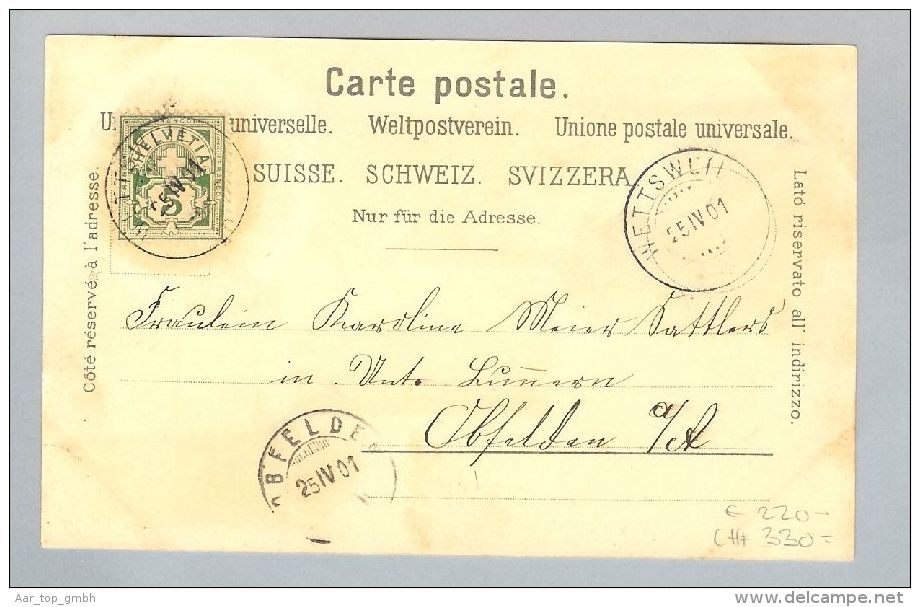 Carte postale.
universelle. Weltpostverein. Unione postale universale.
SUISSE. SCHWEIZ. SVIZZERA
Nur für die Adresse.
Côté réservé à l'adresse.
Lato riservato all' indirizzo.
HELVETIA
5
25 IV 01
WETTSWEIL
25 IV 01
Fräulein Karoline Meier Sattlers
in Unt. Lunnern
Obfelden a/A
OBFELDEN
25 IV 01
€ 220-
CHF 330=
Aar_top_gmbh
www.delcampe.net